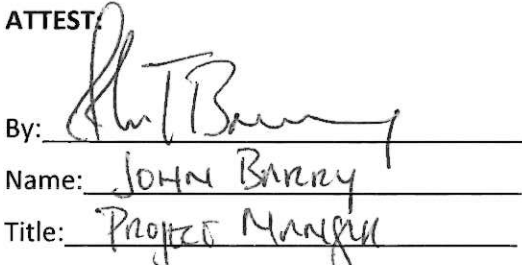 ATTEST:
By: John T Barry
Name: JOHN BARRY
Title: PROJECT MANAGER